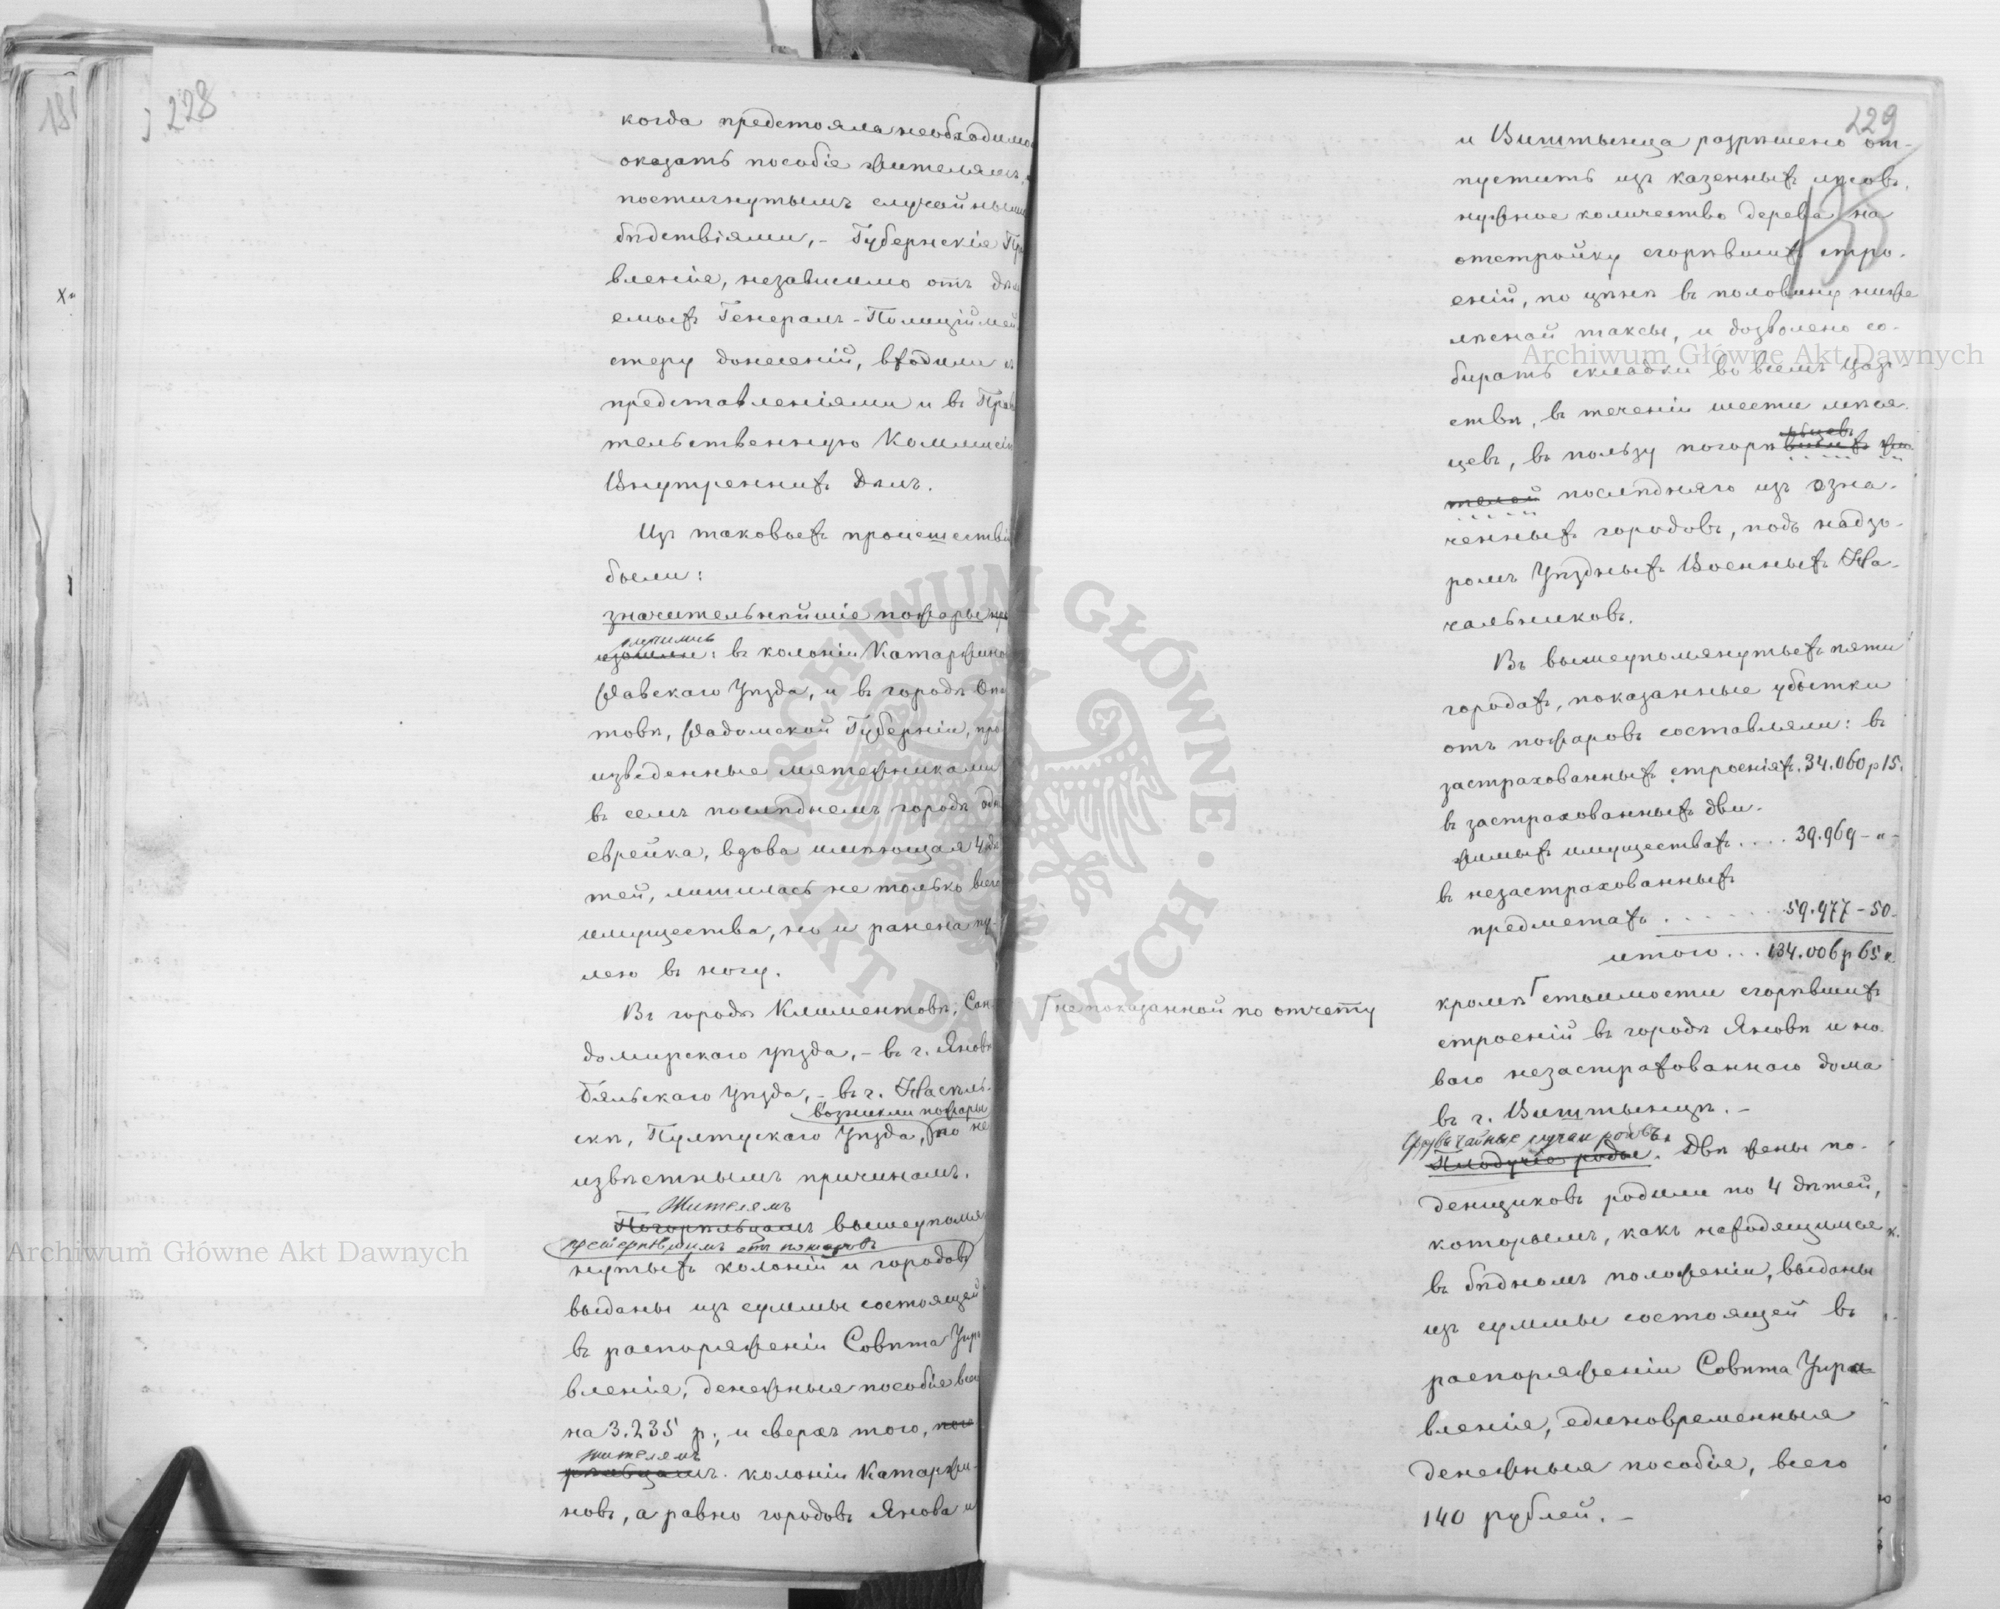 228
когда предстояла необходимо
оказать пособіе жителямъ,
постигнутымъ случайными
бѣдствіями, – Губернскія Пра
вленія, независимо отъ дѣла
емыхъ Генералъ-Полиціймей
стеру донесеній, входили съ
представленіями и въ Прави
тельственную Коммисію
Внутреннихъ Дѣлъ.
Изъ таковыхъ происшествій
были:
значительнѣйшіе пожары
случились
: въ колоніи Катаржино
Равскаго Уѣзда, и въ городѣ Опа
товѣ, Радомской Губерніи, про
изведенные мятежниками
въ семъ послѣднемъ городѣ одна
еврейка, вдова имѣющая 4 дѣ
тей, лишилась не только всего
имущества, но и ранена пу-
лею въ ногу.
Въ городѣ Климентовѣ, Сан
домирскаго уѣзда, – въ г. Яновѣ
Бяльскаго Уѣзда, – въ г. Насѣль-
возникли пожары
скѣ, Пултускаго Уѣзда, по не
извѣстнымъ причинамъ.
Жителямъ
Погорѣльцамъ вышеупомя
претерпѣвшимъ отъ пожаровъ
нутыхъ колоній и городовъ
выданы изъ суммы состоящей
въ распоряженіи Совѣта Упра
вленія, денежныя пособія всего
на 3.235 р; и сверхъ того, пого
жителямъ
рѣльцамъ колоніи Катаржи-
новъ, а равно городовъ Янова и
229
и Виштынца разрѣшено от-
пустить изъ казенныхъ лѣсовъ,
нужное количество дерева на
отстройку сгорѣвшихъ стро-
еній, по цѣнѣ въ половину ниже
лѣсной таксы, и дозволено со-
бирать складки во всемъ Цар-
ствѣ, въ теченіи шести мѣся-
льцевъ
цевъ, въ пользу погорѣвшихъ жи
телей послѣдняго изъ озна-
ченныхъ городовъ, подъ надзо-
ромъ Уѣздныхъ Военныхъ На-
чальниковъ.
Въ вышеупомянутыхъ пяти
городахъ, показанные убытки
отъ пожаровъ составляли: въ
застрахованныхъ строеніяхъ. 34.060 р 15.
въ застрахованныхъ дви-
жимыхъ имуществахъ.... 39.969 – " –
въ незастрахованныхъ
предметахъ ....... 59.977 – 50.
итого... 134.006 р 65 к.
кромѣ стоимости сгорѣвшихъ
не показанной по отчету
строеній въ городѣ Яновѣ и но-
ваго незастрахованнаго дома
въ г. Виштынцѣ. –
Чрезвычайные случаи родовъ.
Плодучіе роды. Двѣ жены по-
денщиковъ родили по 4 дѣтей,
которымъ, какъ находящимся
въ бѣдномъ положеніи, выданы
изъ суммы состоящей въ
распоряженіи Совѣта Упра-
вленія, единовременныя
денежныя пособія, всего
140 рублей. –
Archiwum Główne Akt Dawnych
Archiwum Główne Akt Dawnych
ARCHIWUM GŁÓWNE AKT DAWNYCH